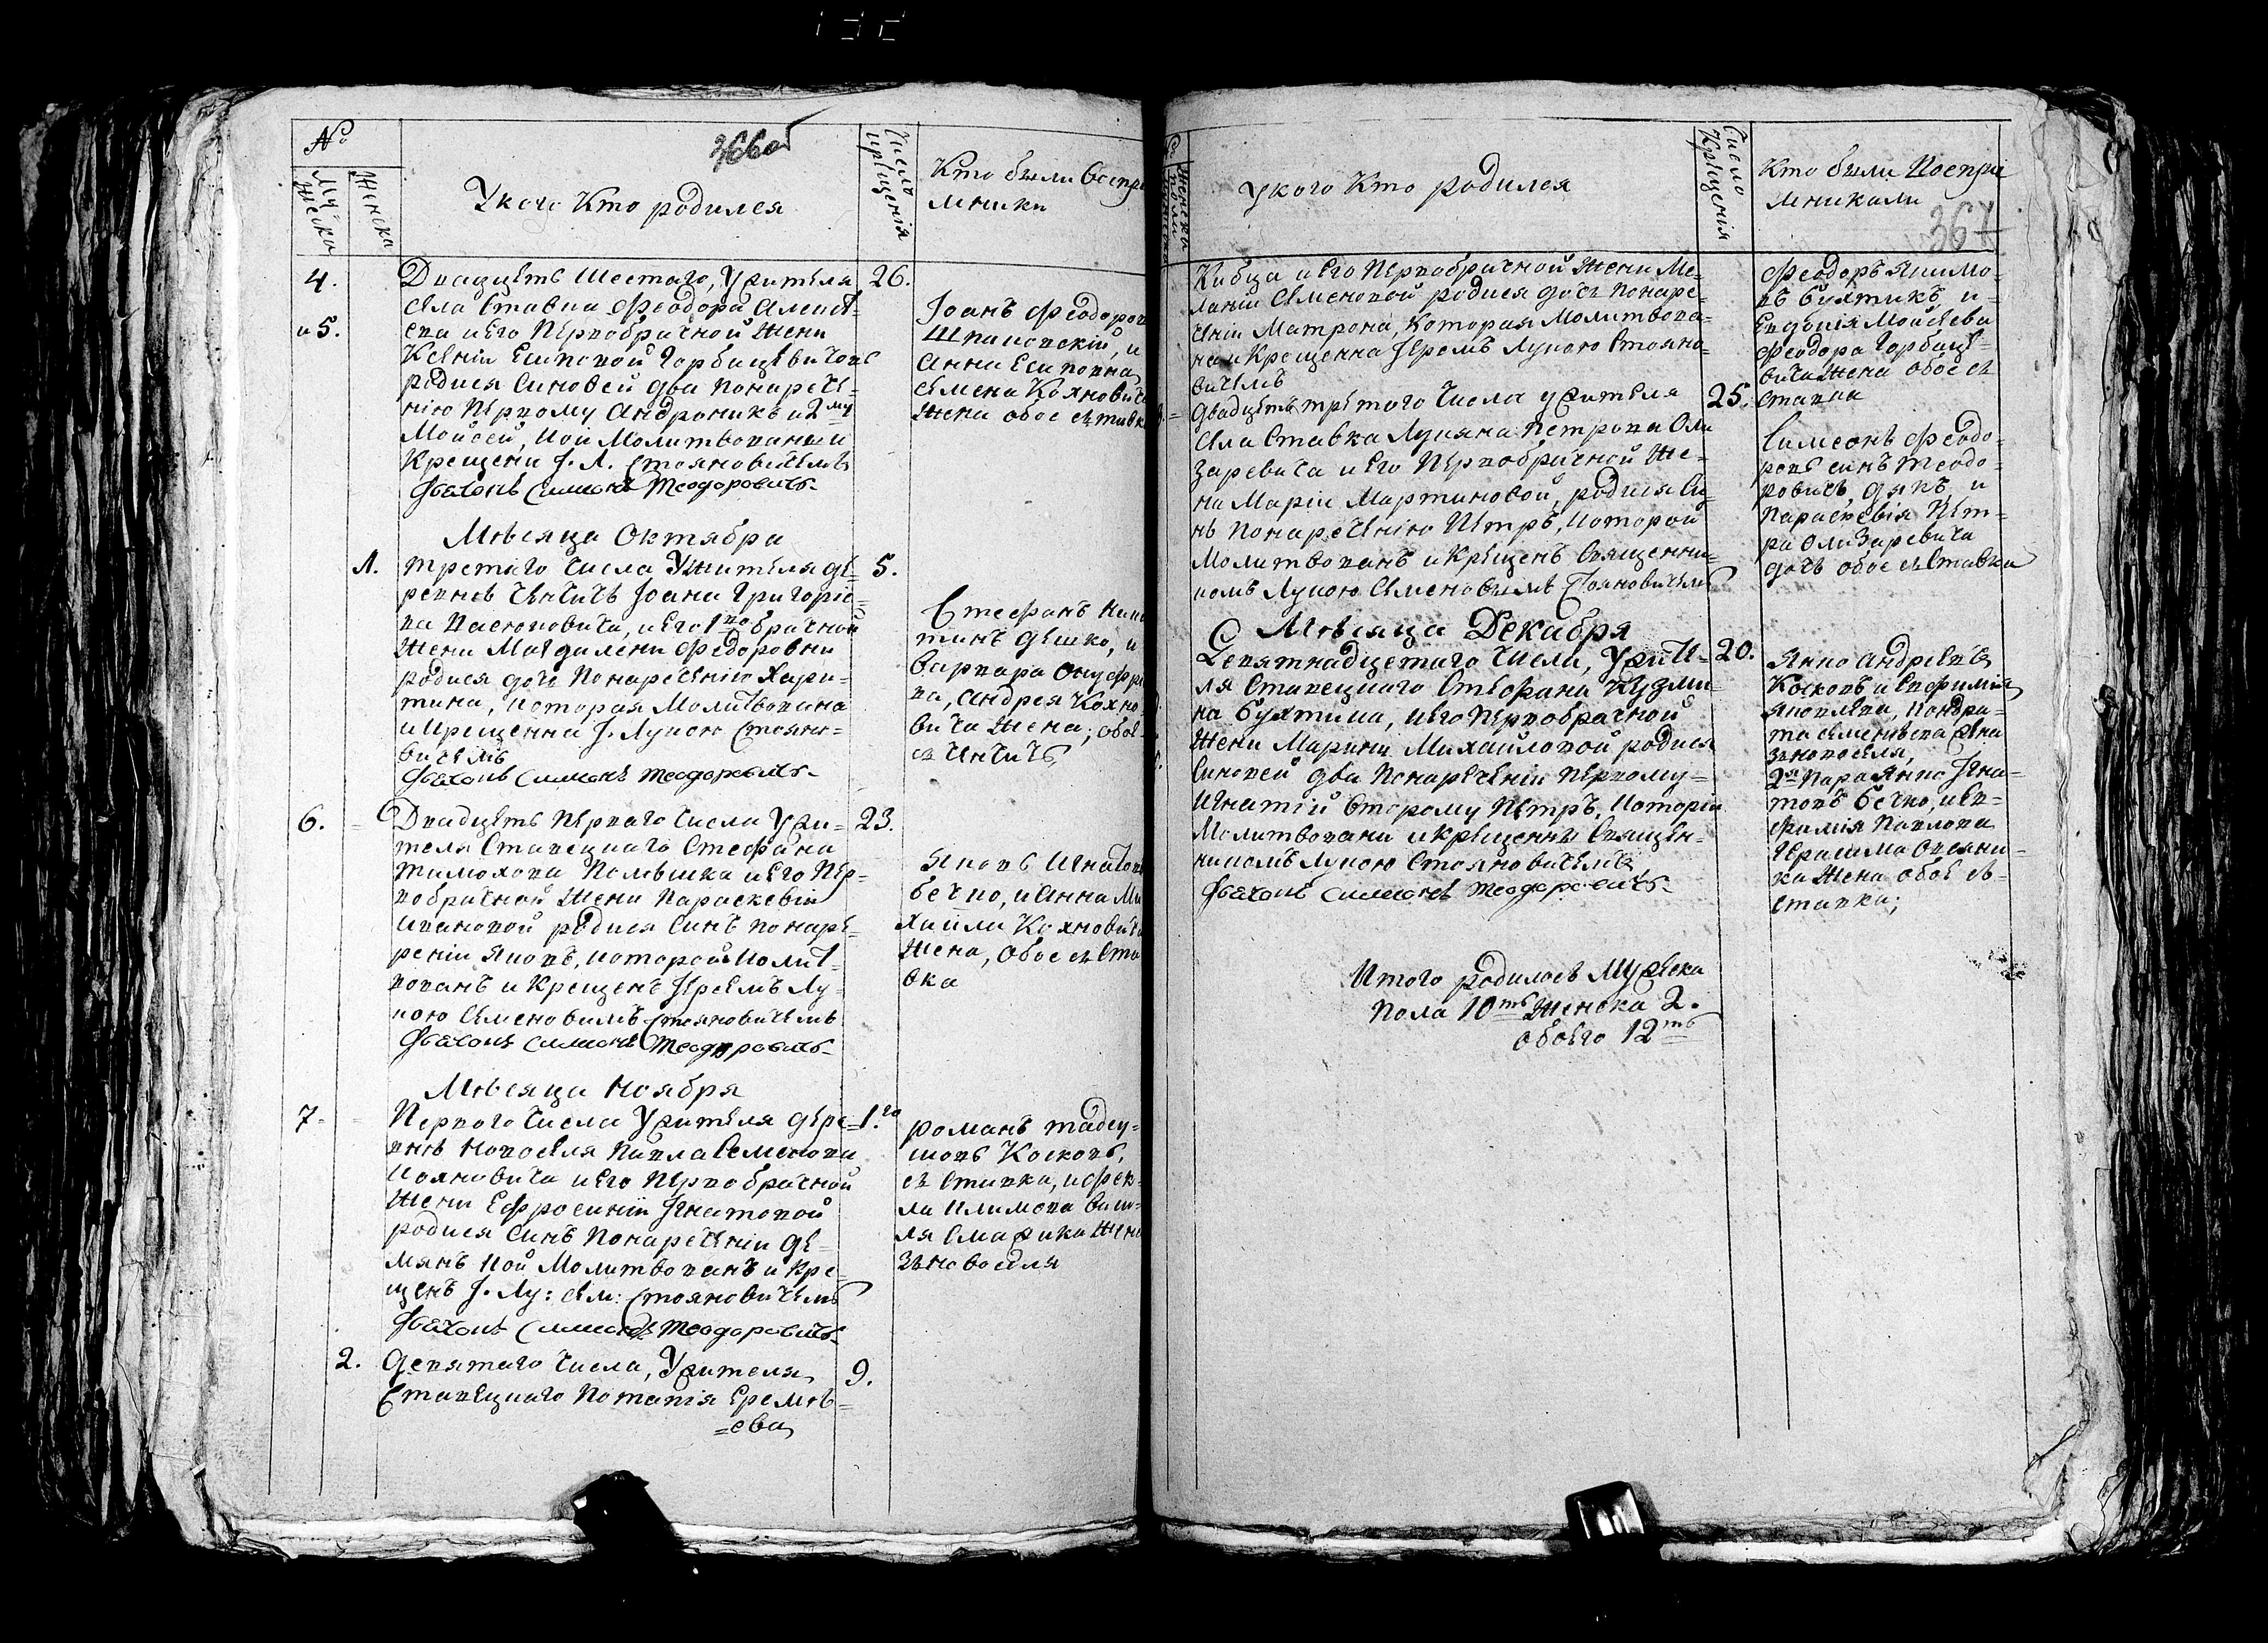 №
366 об
Мужеска
Женска
У кого Кто родился
Число крещенія
Кто были воспрі
мники
4.
и 5.
Двадцеть шестаго, Ужителя
села Ставка Феодора Алексѣ
ева и его первобрачной жени
Ксеніи Есиповой Горбацевичовъ
родися синовей два понарече-
нію первому Андроникъ и 2му
Мойсей, кои молитвовани и
крещени І. Л. Стояновичемъ
Дьячокъ Симеонъ Теодоровичъ
26.
Іоанъ Феодоров
Шпаковскій, и
Анна Есиповна
Семена Кохнович
жена обое съ Ставк
Мѣсяца Октября
1.
Третяго числа Ужителя де-
ревнѣ Чентичъ Іоана Григоріе-
ва Пасюковича, и его 1во брачной
жени Магдалени Федоровни
родися дочь понареченію Хари-
тина, которая молитвована
и крещенна І. Лукою Стояно-
вичемъ
Дьячокъ Симеонъ Теодоровичъ
5.
Стефанъ Ники
тинъ Дешко, и
Варвара Онуфрі
ва, Андрея Кохно
вича жена; обое
съ Чнтичъ
6.
Двадцеть перваго числа Ужи-
теля Ставецкаго Стефана
Тимохова Полѣшка и его пер-
вобрачной жени Параскевіи
Ивановой родися синъ понаре-
реніи Яковъ, которой молит-
вованъ и крещенъ Іереемъ Лу-
кою Семеновимъ Стояновичемъ
Дьячокъ Симеонъ Теодоровичъ
23.
Яковъ Игнатов
Бечко, и Анна Ми
хаили Кохновича
жена, обое съ Ста
вка
Мѣсяца Ноября
7
Перваго числа Ужителя дере-
внѣ Новоселя Павла Семенова
Кояновича и его первобрачной
жени Ефросиніи Ігнатовой
родися синъ понареченіи Де-
мянъ кой молитвованъ и кре-
щенъ І. Лу: Сем: Стояновичемъ
Дьячокъ Симеонъ Теодоровичъ
1.го
Романъ Тадеу-
шовъ Косковъ,
съ Ставка, и Фек-
ла Климова Васи-
ля Смажика жена
зъ Новоселя
2.
Девятаго числа, Ужителя
Ставецкаго Потапія Еремѣ-
=ева
9.
Женска
У кого Кто родился
Число Крещенія
Кто были Воспрі
мниками
367
Кибца и его первобрачной жени Ме-
ланіи Семеновой родися дочь понаре-
ченіи Матрона, которая молитвова-
на и крещенна Іереемъ Лукою Стояно-
вичемъ
Феодоръ Якимо-
въ Бухтикъ, и
Евдокія Мойсеева
Феодора Горбаце-
вича жена обое съ
Ставка
Двадцеть третого числа ужителя
села Ставка Лукяна Петрова Оли
заревича и его первобрачной же-
на Маріи Мартиновой, родися си-
нъ понареченію Петръ, которой
молитвованъ и крещенъ Священни-
комъ Лукою Семеновымъ Стояновичемъ
25.
Симеонъ Феодо-
ровъ синъ Теодо-
ровичъ, дякъ, и
Параскевія Пет-
ра Олизаревича
дочь обое съ Ставка
Мѣсяца Декабря
Девятнадцетаго числа, Ужите-
ля Ставецкаго Стефана Кузми-
на Бухтика, и его первобрачной
жени Марини Михайловой родися
синовей два понареченіи первому-
Игнатій второму Петръ, которіи
молитвовани и крещенны Священ-
никомъ Лукою Стояновичемъ
Дьячокъ Симеонъ Теодоровичъ
20.
Янко Андреевъ
Косковъ и Евфимія
Яковлева, Кондра-
та Семенчева жена
зъ Новоселя,
2я Пара Янко Ігна-
товъ Бечко, и Ев-
фимія Павлова
Герасима Овсяни-
ка жена обое съ
Ставка;
Итого родилось Мужеска
Пола 10ть Женска 2.
обоего 12ть